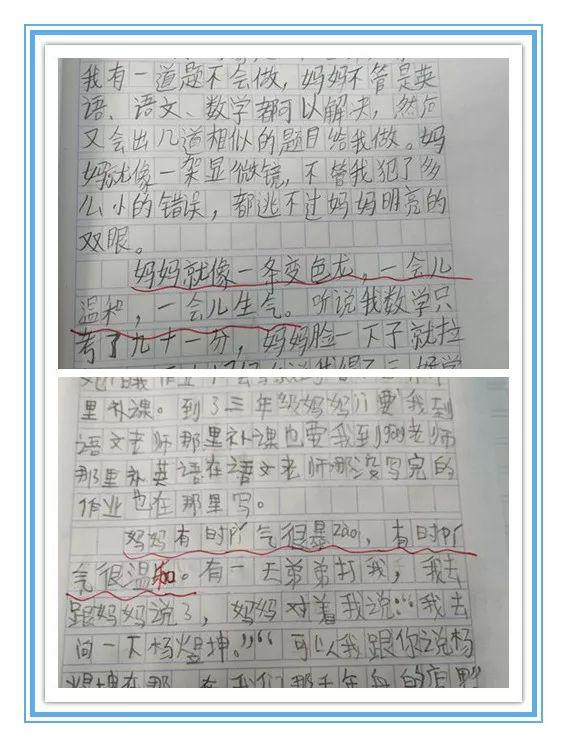 我有一道题不会做，妈妈不管是英
语、语文、数学都可以解决，然后
又会出几道相似的题目给我做。妈
妈就像一架显微镜，不管我犯了多
么小的错误，都逃不过妈妈明亮的
双眼。
妈妈就像一条变色龙，一会儿
温和，一会儿生气。听说我数学只
考了九十一分，妈妈脸一下子就拉
里补课。到了三年级妈妈要我到
语文老师那里补课也要我到老师
那里补英语在语文老师那没写完的
作业也在那里写。
妈妈有时pí气很暴zao，有时pí
气很温和。有一天弟弟打我，我去
跟妈妈说了，妈妈对着我说：“我去
问一下杨煜坤。”“可以我跟你说杨